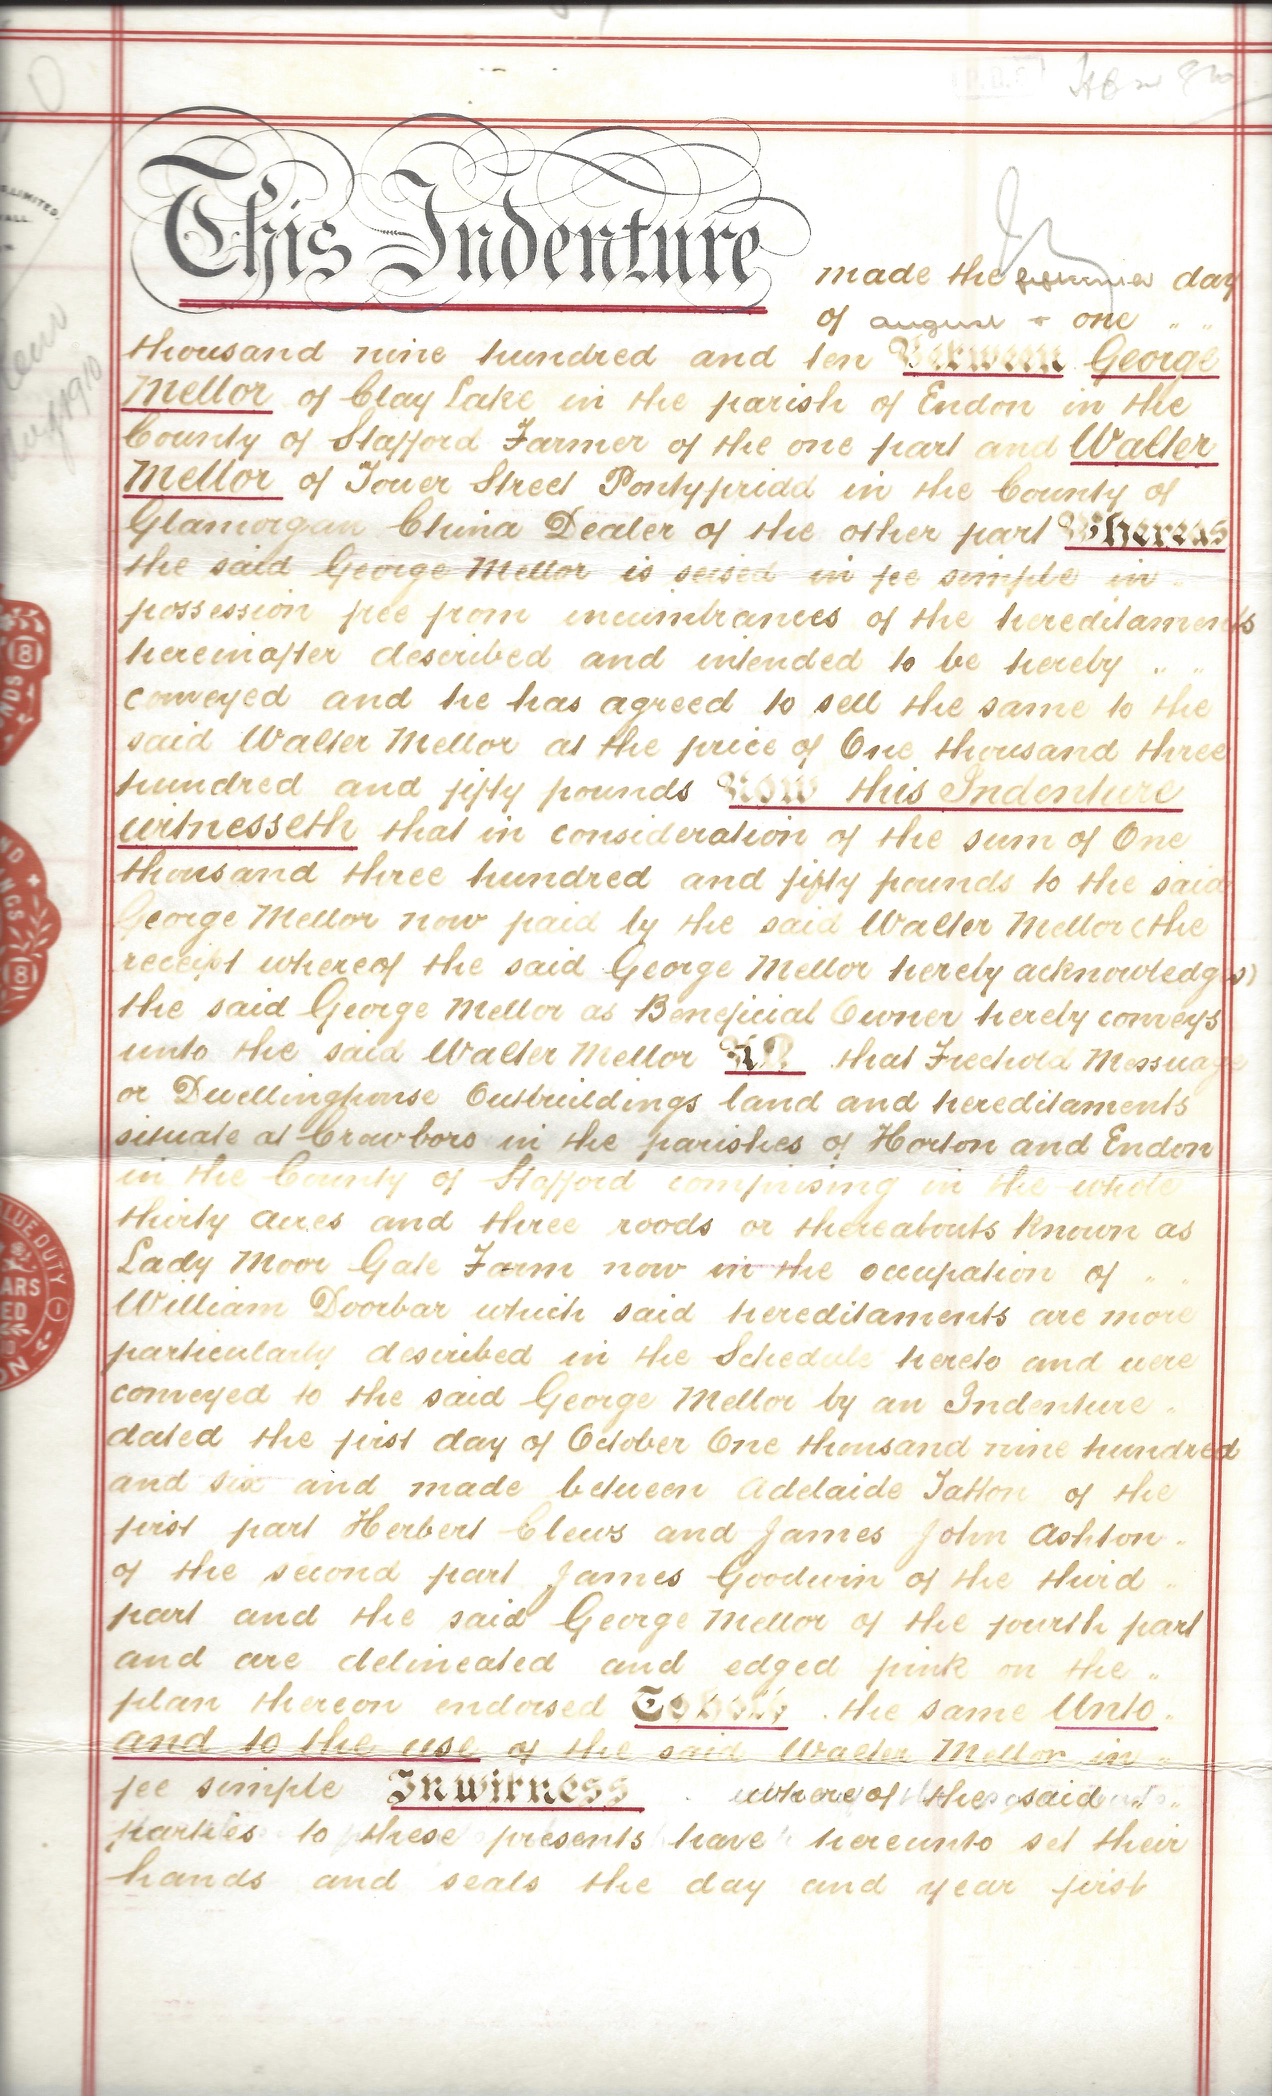 This Indenture
made the day
of august one " "
thousand nine hundred and ten Between George
Mellor of Clay Lake in the parish of Endon in the
County of Stafford Farmer of the one part and Walter
Mellor of Tower Street Pontypridd in the County of
Glamorgan China Dealer of the other part Whereas
the said George Mellor is seised in fee simple in "
possession free from incumbrances of the hereditaments
hereinafter described and intended to be hereby " "
conveyed and he has agreed to sell the same to the
said Walter Mellor at the price of One thousand three
hundred and fifty pounds Now this Indenture
witnesseth that in consideration of the sum of One
thousand three hundred and fifty pounds to the said
George Mellor now paid by the said Walter Mellor (the
receipt whereof the said George Mellor hereby acknowledges)
the said George Mellor as Beneficial Owner hereby conveys
unto the said Walter Mellor All that Freehold Messuage
or Dwellinghouse Outbuildings land and hereditaments
situate at Crowboro in the parishes of Horton and Endon
in the County of Stafford comprising in the whole
thirty acres and three roods or thereabouts known as
Lady Moor Gate Farm now in the occupation of " "
William Doorbar which said hereditaments are more
particularly described in the Schedule hereto and were
conveyed to the said George Mellor by an Indenture "
dated the first day of October One thousand nine hundred
and six and made between Adelaide Tatton of the
first part Herbert Clews and James John Ashton "
of the second part James Goodwin of the third "
part and the said George Mellor of the fourth part
and are delineated and edged pink on the "
plan thereon endorsed To hold the same Unto "
and to the use of the said Walter Mellor in "
fee simple In witness whereof the said " "
parties to these presents have hereunto set their
hands and seals the day and year first
LIMITED
8
8
VALUE DUTY